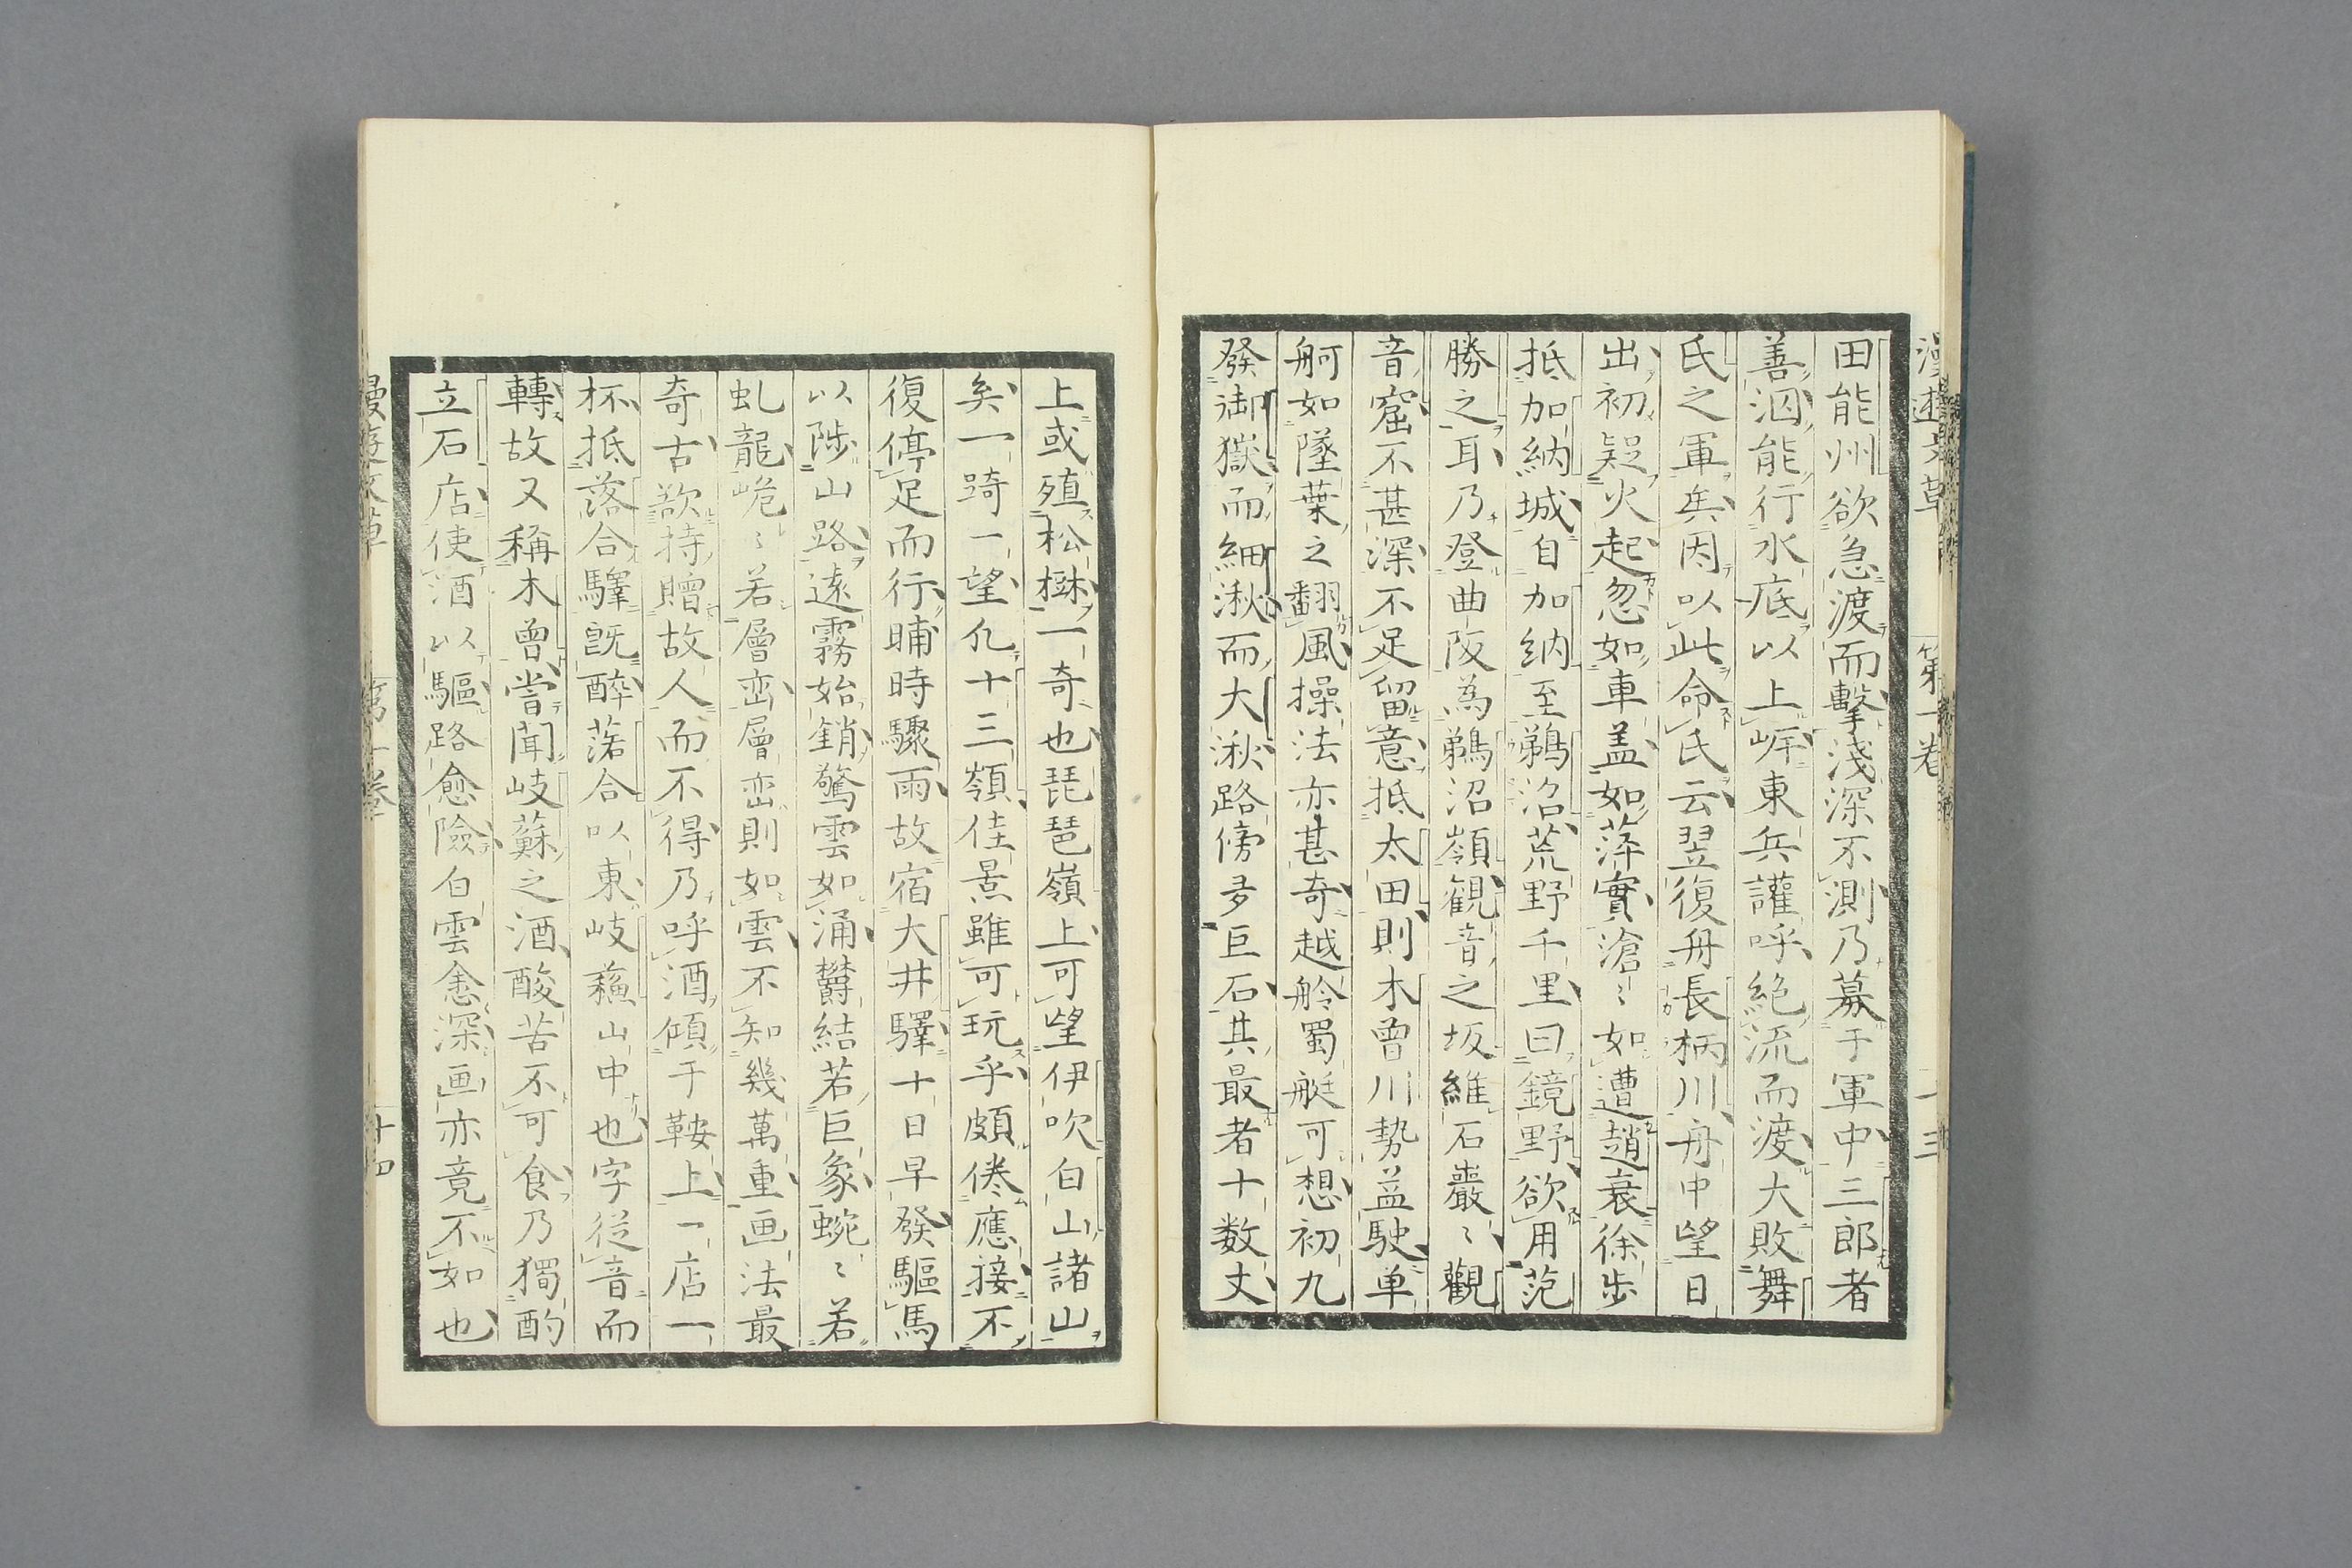 田能州欲急渡而擊淺深不測乃募于軍中三郎者
善泅能行水底以上岸東兵讙呼絶流而渡大敗舞
氏之軍矣因以此命氏云翌復舟長柄川舟中望日
出初疑火起忽如車盖如萍實滄〻如遭趙衰徐步
抵加納城自加納至鵜沼荒野千里曰鏡野欲用范
勝之耳乃登曲阪為鵜沼嶺觀音之坂維石巖〻觀
音窟不甚深不足留意抵太田則木曽川勢益駛单
舸如墜葉之翻風操法亦甚奇越舲蜀艇可想初九
發御嶽而細湫而大湫路傍多巨石其最者十数丈
上或殖松櫾一奇也琵琶嶺上可望伊吹白山諸山
矣一踦一望凢十三嶺佳景雖可玩乎頗倦應接不
復停足而行晡時驟雨故宿大井驛十日早發驅馬
以陟山路遠霧始銷驚雲如涌欝結若巨象蜿〻若
虬龍峗〻若層巒層巒則如雲不知幾萬重画法最
奇古欲持贈故人而不得乃呼酒傾于鞍上一店一
杯抵落合驛既醉落合以東岐蘓山中也字從音而
轉故又稱木曽嘗聞岐蘇之酒酸苦不可食乃獨酌
立石店使酒以驅路愈險白雲愈深画亦竟不如也
漫遊文草 第一卷 十三
漫遊文草 第一卷 十四